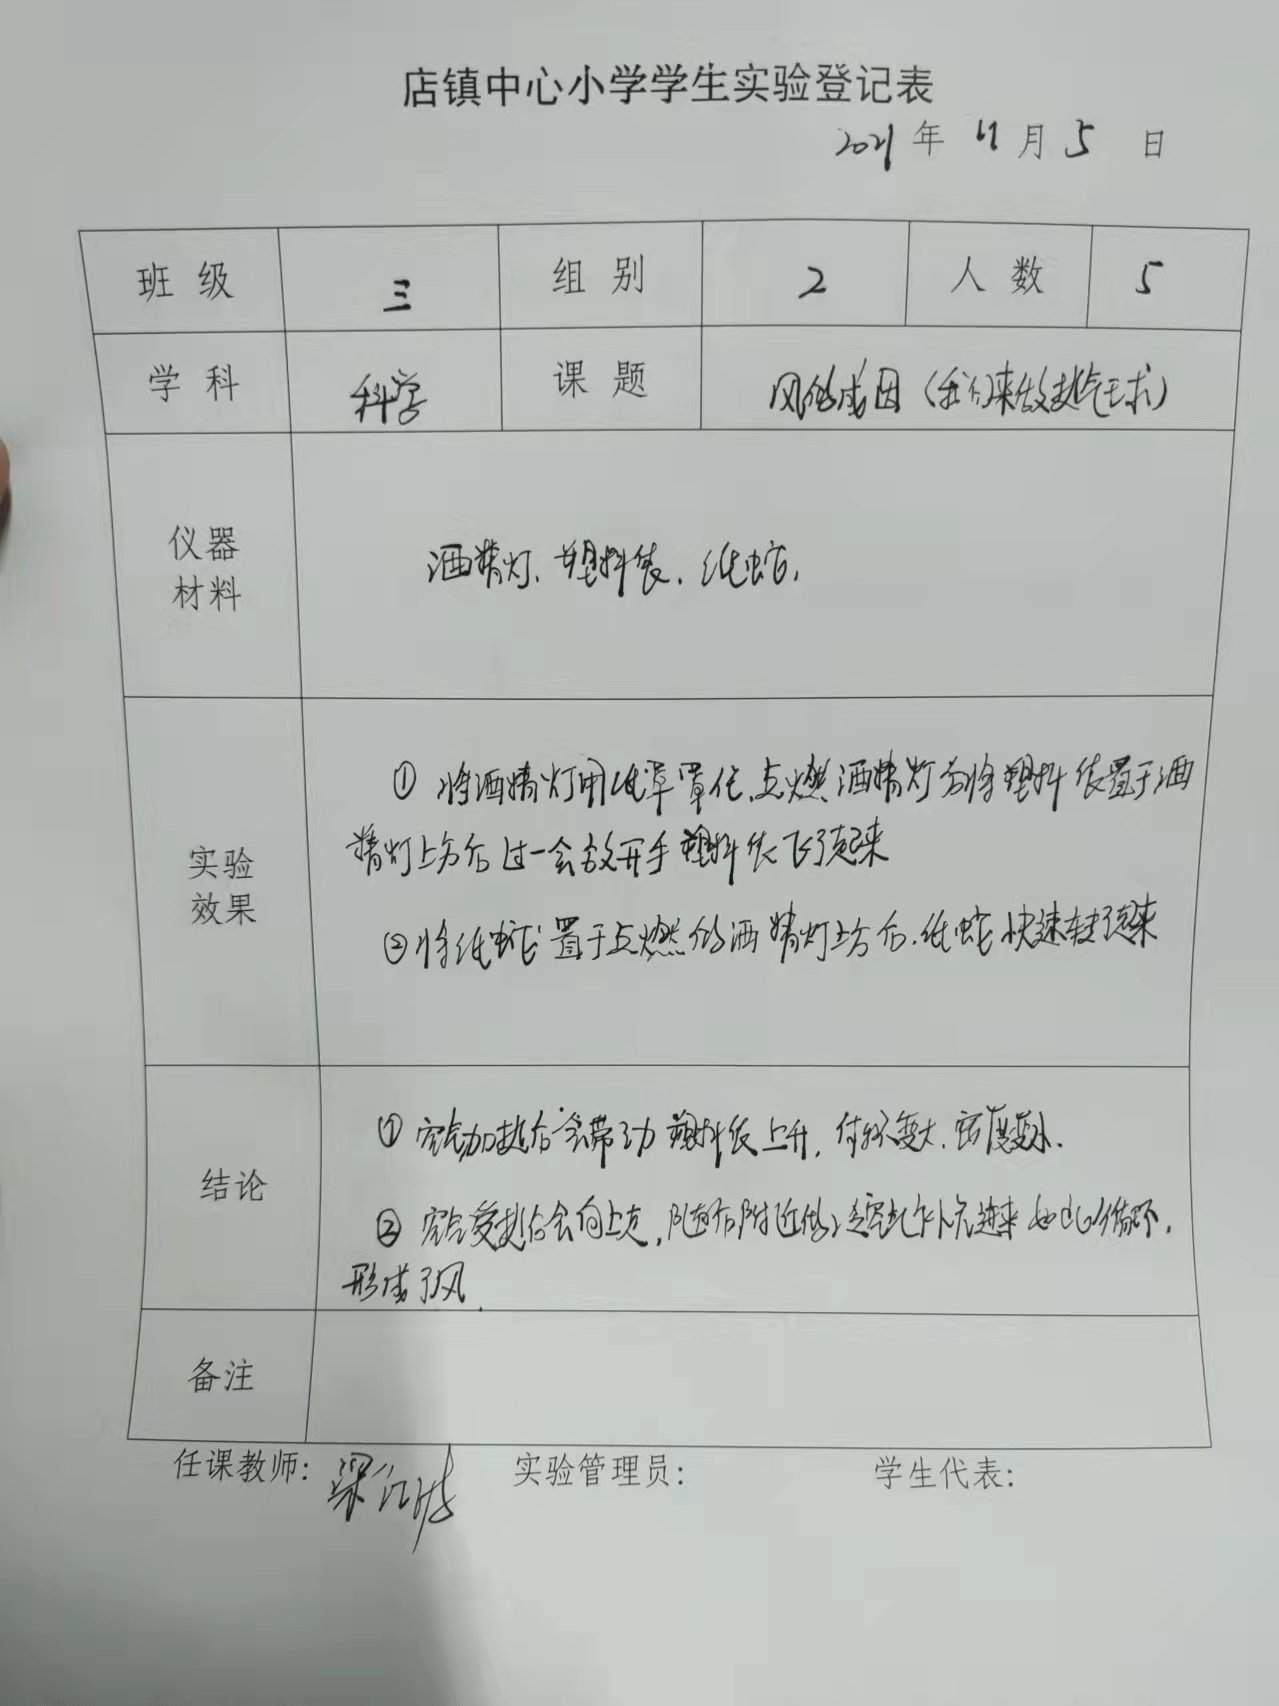 店镇中心小学学生实验登记表
2021年11月5日
班级 三 组别 2 人数 5
学科 科学 课题 风的成因（我们来做热气球）
仪器材料 酒精灯、塑料袋、纸蛇，
实验效果
① 将酒精灯用纸罩罩住，点燃酒精灯后将塑料袋置于酒
精灯上方后过一会放开手塑料袋飞了起来
②将纸蛇置于点燃的酒精灯上方后，纸蛇快速转了起来
结论
① 空气加热后会带动塑料袋上升，体积变大，密度变小.
② 空气受热后会向上走，随后附近的冷空气补充进来如此循环，
形成了风.
备注
任课教师：梁 实验管理员： 学生代表：